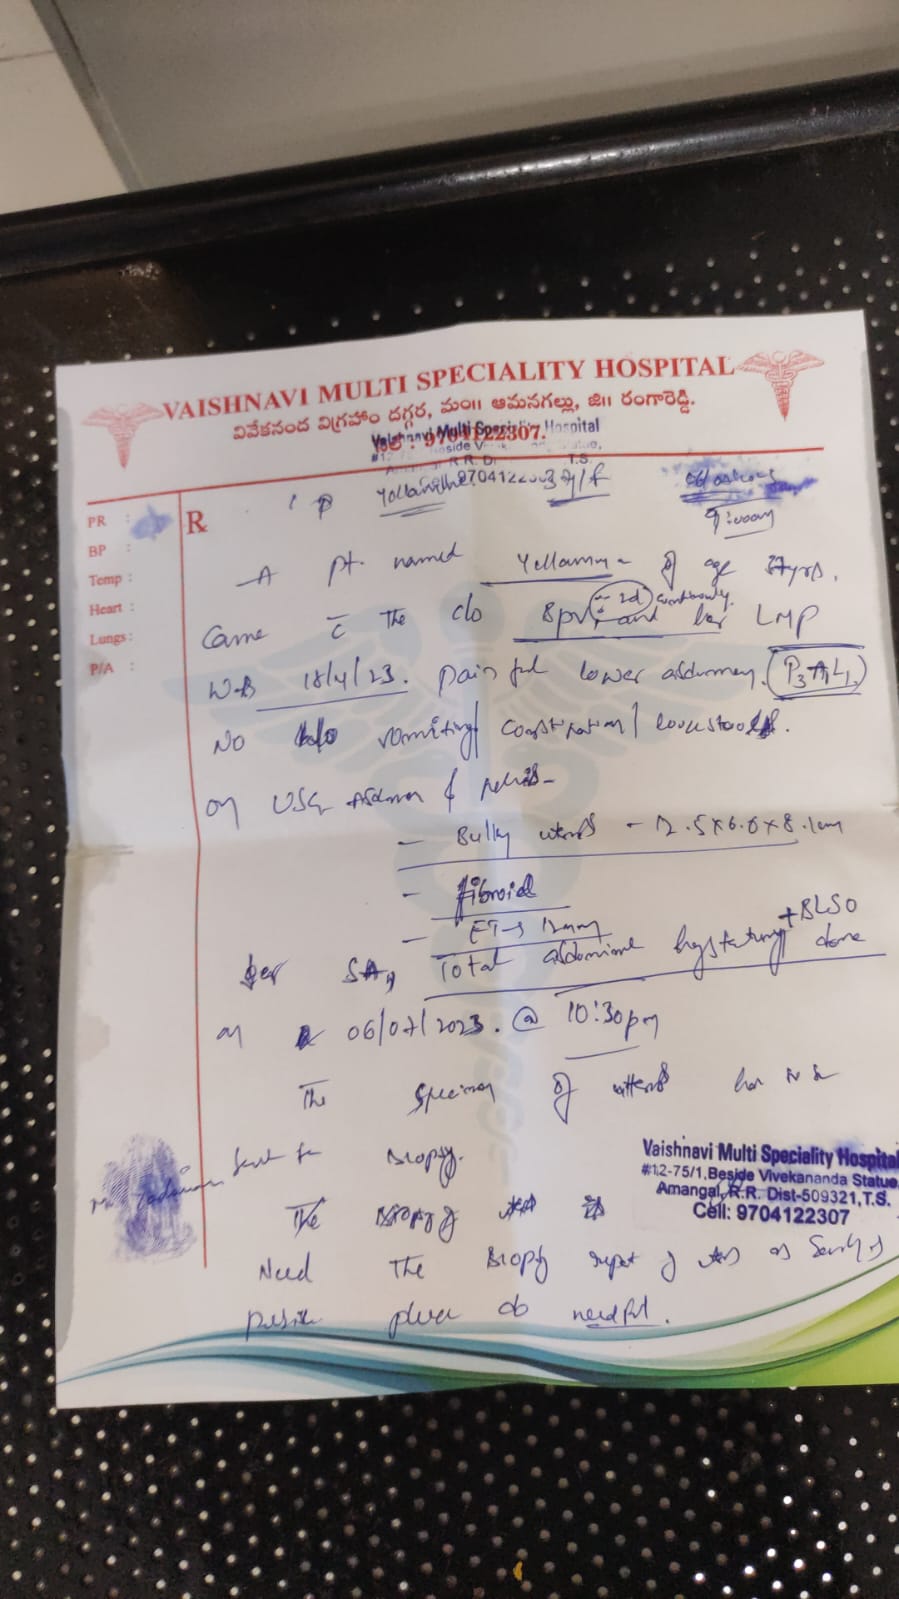 VAISHNAVI MULTI SPECIALITY HOSPITAL
వివేకనంద విగ్రహం దగ్గర, మం॥ ఆమనగల్లు, జి॥ రంగారెడ్డి.
సెల్ : 9704122307.
Vaishnavi Multi Speciality Hospital
Beside
R.R. Di T.S.
PR :
BP :
Temp :
Heart :
Lungs :
P/A :
R
A pt. named Yellamma of age yrs.
Came c̄ The c/o Bpv 2d continously. and her LMP
was 18/4/23. painful lower abdomen. (P3 A1 L1)
No h/o vomiting / constipation / loosestools.
on USG Abdomen & pelvis -
- Bulky uterus - 12.5x6.6x8.1cm
- fibroid
- ET → 12mm
Under SA, Total abdominal hysterectomy + BLSO done
on 06/07/2023. @ 10:30pm
The specimen of uterus has
Sent for Biopsy.
The Biopsy of
Need The Biopsy report of as
please do needful.
Vaishnavi Multi Speciality Hospital
#12-75/1, Beside Vivekananda Statue
Amangal, R.R. Dist-509321, T.S.
Cell: 9704122307